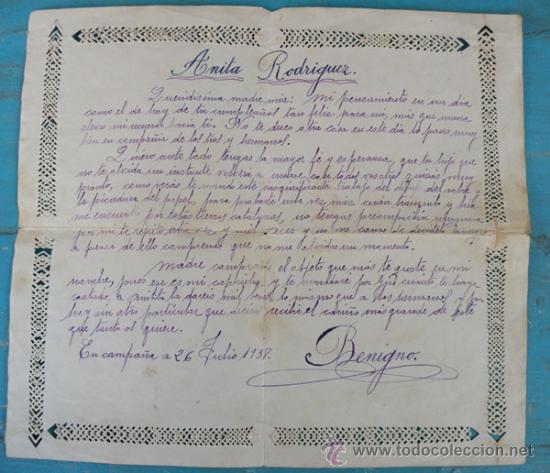 Anita Rodriguez.
Queridisima madre mia: Mi pensamiento en un dia
como el de hoy de tu cumpleaños tan feliz para mi, mas que nunca
elevo mi hacia ti. No te deseo otra cosa en este dia lo pases muy
bien en compañia de los tios y hermanos.
Quiero ante todo tengas la mayor fé y esperanza, que tu hijo que
no te olvida un instante volverá a unirse con todos vosotros quizás muy
pronto, como verás te mando este magnifico trabajo del
y la picadura del papel, para probarte una vez más cuán tranquilo y bien
me encuentro por estas tierras catalanas, no tengas preocupación ninguna
por mi te repito otra vez y mil veces y no me canso de
a pesar de ello comprendo que no me olvidas un momento.
Madre comprarás el objeto que más te guste en mi
nombre, pues ese es mi capricho, y te mandaré por giro cuanto te haya
costado, a la dareis mil besos lo mismo que a los hermanos y
hoy un particular que recibe el cariño más grande de este
que tanto os quiere.
En campaña a 26 Julio 1938.
Benigno.
www.todocoleccion.net